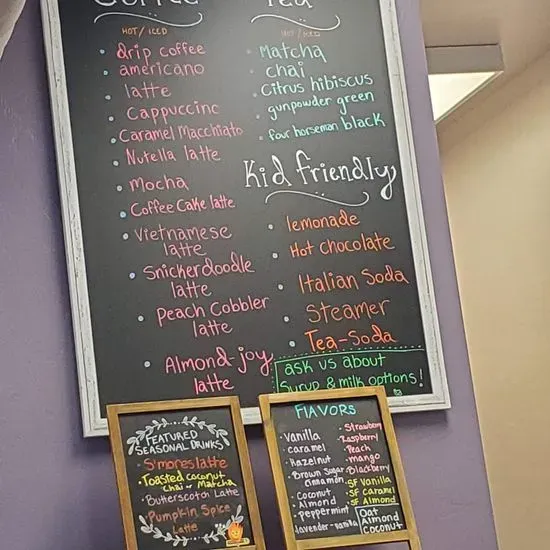 Coffee
HOT/ICED
drip coffee
americano
latte
Cappuccino
Caramel Macchiato
Nutella latte
Mocha
Coffee Cake latte
Vietnamese
latte
Snickerdoodle
latte
Peach Cobbler
latte
Almond-joy
latte
Tea
HOT/ICED
Matcha
chai
Citrus hibiscus
gunpowder green
four horseman black
Kid friendly
lemonade
Hot chocolate
Italian Soda
Steamer
Tea-Soda
ask us about
Syrup & milk options!
FEATURED
SEASONAL DRINKS
S'mores latte
Toasted coconut
Chai or Matcha
Butterscotch Latte
Pumpkin Spice
Latte
FLAVORS
Vanilla
caramel
hazelnut
Brown Sugar
cinnamon
Coconut
Almond
Peppermint
lavender-vanilla
Strawberry
Raspberry
Peach
mango
Blackberry
SF Vanilla
SF Caramel
SF Almond
Oat
Almond
Coconut